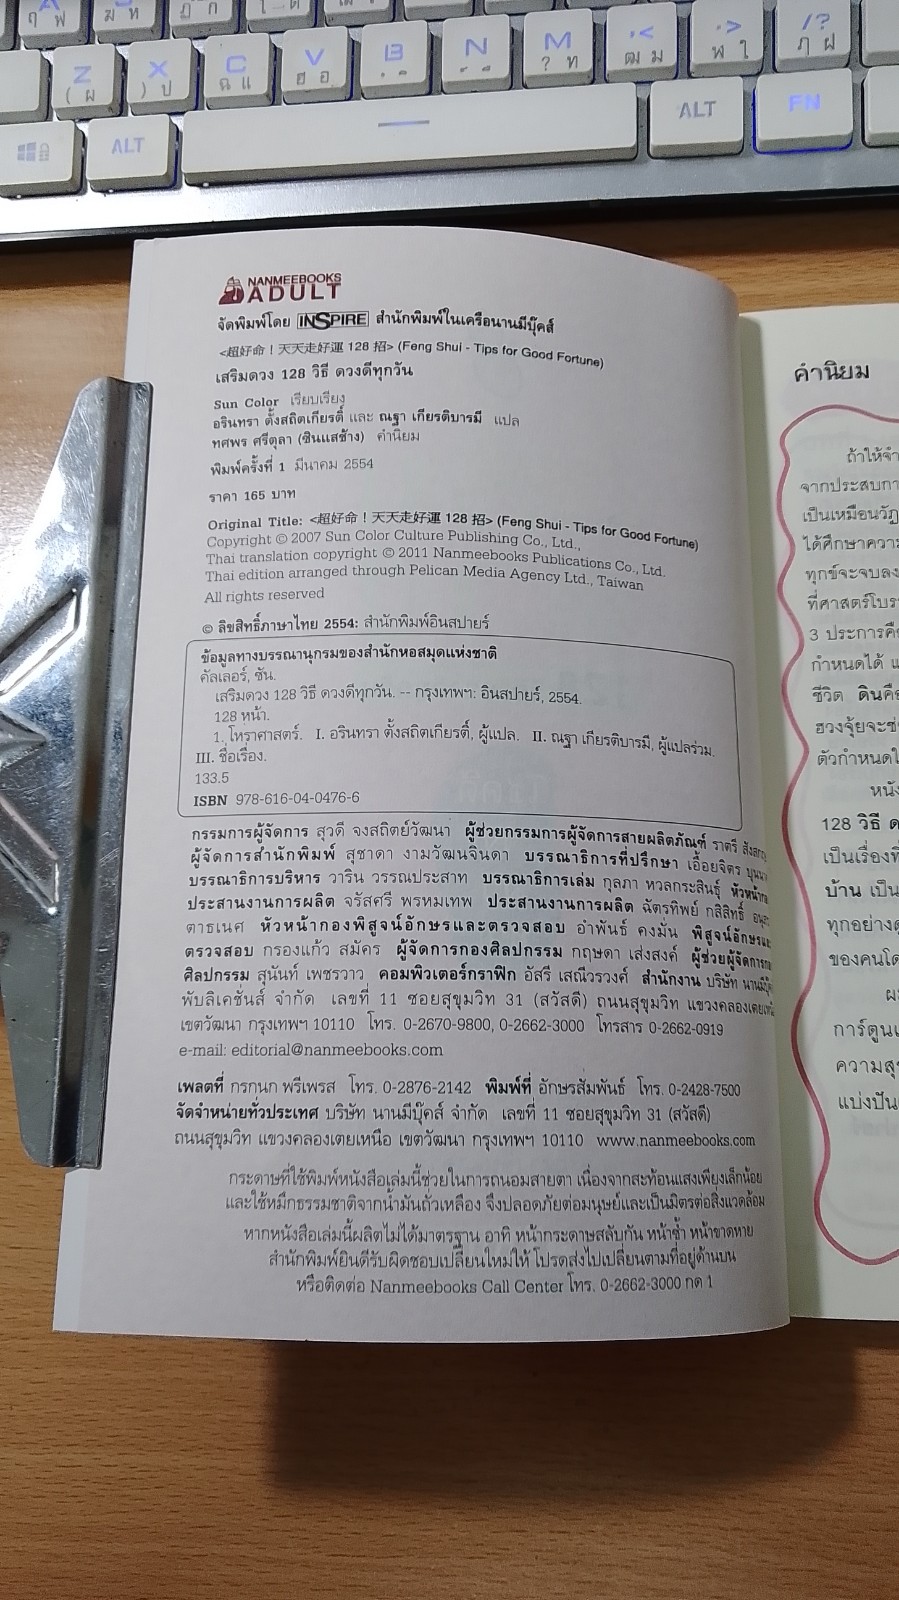 Z ( ผ
X ) ป
C ฉ แ
V ฮ อ
B
N
M ? ท
< ฒ ม
> ฬ ใ
/? ฦ ฝ
ALT
ALT
FN
NANMEEBOOKS
ADULT
จัดพิมพ์โดย INSPIRE สำนักพิมพ์ในเครือนานมีบุ๊คส์
<超好命！天天走好運 128 招> (Feng Shui - Tips for Good Fortune)
เสริมดวง 128 วิธี ดวงดีทุกวัน
Sun Color เรียบเรียง
อรินทรา ตั้งสถิตเกียรติ์ และ ณฐา เกียรติบารมี แปล
ทศพร ศรีตุลา (ซินแสช้าง) คำนิยม
พิมพ์ครั้งที่ 1 มีนาคม 2554
ราคา 165 บาท
Original Title: <超好命！天天走好運 128 招> (Feng Shui - Tips for Good Fortune)
Copyright © 2007 Sun Color Culture Publishing Co., Ltd.,
Thai translation copyright © 2011 Nanmeebooks Publications Co., Ltd.
Thai edition arranged through Pelican Media Agency Ltd., Taiwan
All rights reserved
© ลิขสิทธิ์ภาษาไทย 2554: สำนักพิมพ์อินสปายร์
ข้อมูลทางบรรณานุกรมของสำนักหอสมุดแห่งชาติ
คัลเลอร์, ซัน.
เสริมดวง 128 วิธี ดวงดีทุกวัน. -- กรุงเทพฯ: อินสปายร์, 2554.
128 หน้า.
1. โหราศาสตร์. I. อรินทรา ตั้งสถิตเกียรติ์, ผู้แปล. II. ณฐา เกียรติบารมี, ผู้แปลร่วม.
III. ชื่อเรื่อง.
133.5
ISBN 978-616-04-0476-6
กรรมการผู้จัดการ สุวดี จงสถิตย์วัฒนา ผู้ช่วยกรรมการผู้จัดการสายผลิตภัณฑ์ ราตรี
ผู้จัดการสำนักพิมพ์ สุชาดา งามวัฒนจินดา บรรณาธิการที่ปรึกษา เอื้อยจิตร
บรรณาธิการบริหาร วาริน วรรณประสาท บรรณาธิการเล่ม กุลภา หวลกระสินธุ์
ประสานงานการผลิต จรัสศรี พรหมเทพ ประสานงานการผลิต ฉัตรทิพย์ กสิสิทธิ์
ตาธเนศ หัวหน้ากองพิสูจน์อักษรและตรวจสอบ อำพันธ์ คงมั่น พิสูจน์อักษรและ
ตรวจสอบ กรองแก้ว สมัคร ผู้จัดการกองศิลปกรรม กฤษดา เส่งสงค์
ศิลปกรรม สุนันท์ เพชรวาว คอมพิวเตอร์กราฟิก อัสรี เสณีวรวงศ์ สำนักงาน บริษัท นานมีบุ๊คส์
พับลิเคชั่นส์ จำกัด เลขที่ 11 ซอยสุขุมวิท 31 (สวัสดี) ถนนสุขุมวิท แขวงคลองเตยเหนือ
เขตวัฒนา กรุงเทพฯ 10110 โทร. 0-2670-9800, 0-2662-3000 โทรสาร 0-2662-0919
e-mail: editorial@nanmeebooks.com
เพลตที่ กรกนก พรีเพรส โทร. 0-2876-2142 พิมพ์ที่ อักษรสัมพันธ์ โทร. 0-2428-7500
จัดจำหน่ายทั่วประเทศ บริษัท นานมีบุ๊คส์ จำกัด เลขที่ 11 ซอยสุขุมวิท 31 (สวัสดี)
ถนนสุขุมวิท แขวงคลองเตยเหนือ เขตวัฒนา กรุงเทพฯ 10110 www.nanmeebooks.com
กระดาษที่ใช้พิมพ์หนังสือเล่มนี้ช่วยในการถนอมสายตา เนื่องจากสะท้อนแสงเพียงเล็กน้อย
และใช้หมึกธรรมชาติจากน้ำมันถั่วเหลือง จึงปลอดภัยต่อมนุษย์และเป็นมิตรต่อสิ่งแวดล้อม
หากหนังสือเล่มนี้ผลิตไม่ได้มาตรฐาน อาทิ หน้ากระดาษสลับกัน หน้าซ้ำ หน้าขาดหาย
สำนักพิมพ์ยินดีรับผิดชอบเปลี่ยนใหม่ให้ โปรดส่งไปเปลี่ยนตามที่อยู่ด้านบน
หรือติดต่อ Nanmeebooks Call Center โทร. 0-2662-3000 กด 1
คำนิยม
ถ้าให้จำ
จากประสบกา
เป็นเหมือนวัฏ
ได้ศึกษาความ
ทุกข์จะจบลง
ที่ศาสตร์โบร
3 ประการคือ
กำหนดได้ แ
ชีวิต ดินคือ
ฮวงจุ้ยจะช่
ตัวกำหนดใ
หนัง
128 วิธี ด
เป็นเรื่องที่
บ้าน เป็น
ทุกอย่างด
ของคนโด
ผ
การ์ตูนเ
ความสุข
แบ่งปัน